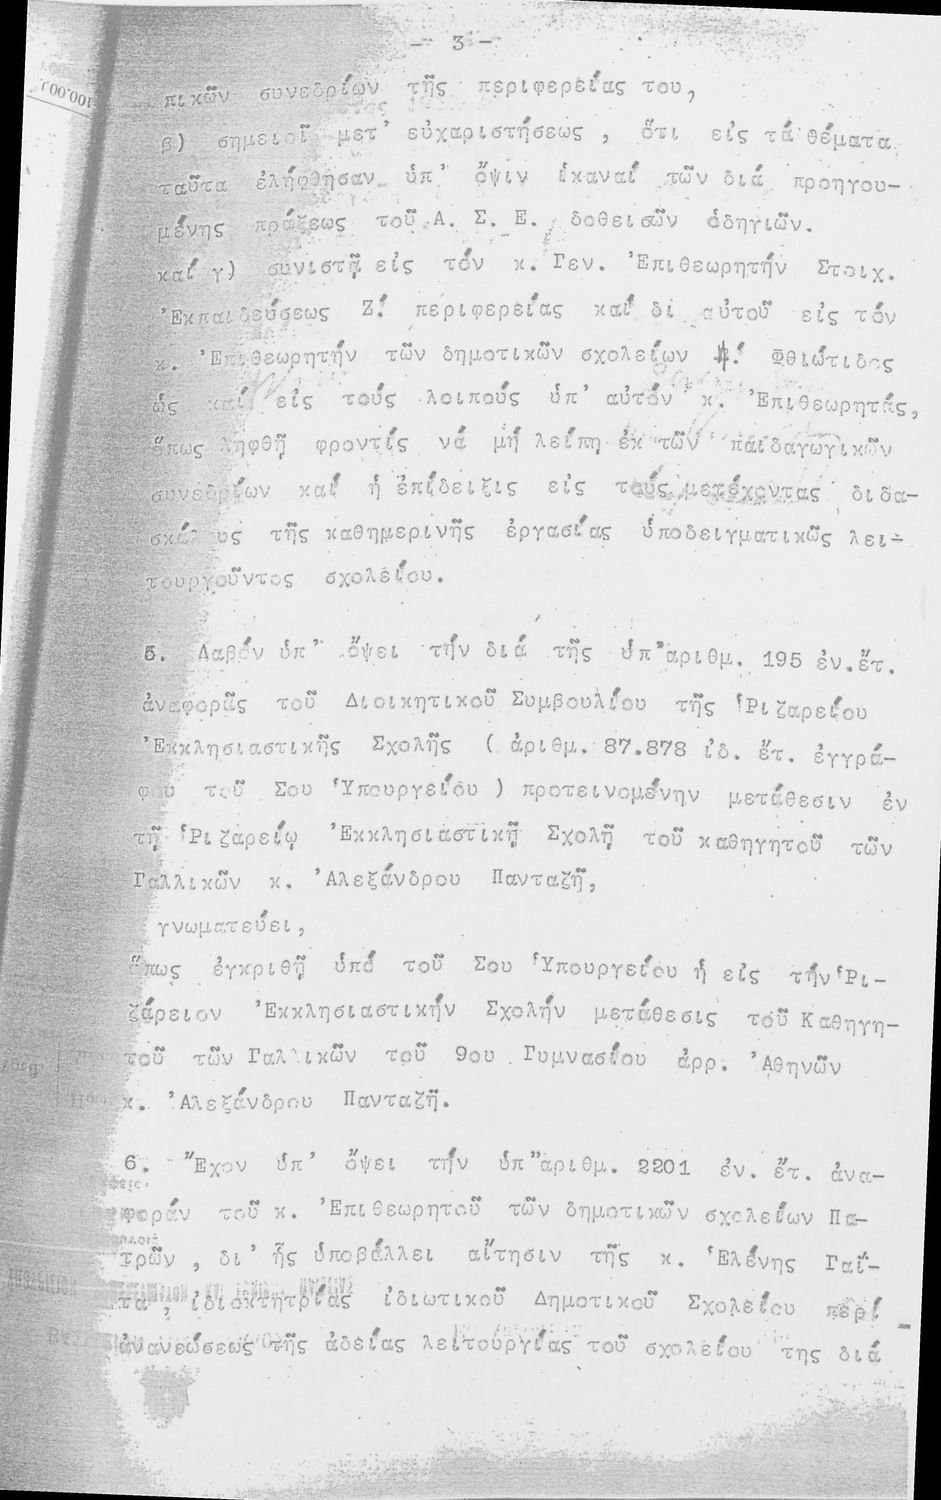 - 3 -
πικῶν συνεδρίων τῆς περιφερείας του,
β) σημειοῖ μετ' εὐχαριστήσεως , ὅτι εἰς τά θέματα
ταῦτα ἐλήφθησαν ὑπ' ὄψιν ἱκαναί τῶν διά προηγου-
μένης πράξεως τοῦ Α. Σ. Ε. δοθεισῶν ὁδηγιῶν.
καί γ) συνιστᾷ εἰς τόν κ. Γεν. Ἐπιθεωρητήν Στοιχ.
Ἐκπαιδεύσεως Ζ! περιφερείας καί δι αὐτοῦ εἰς τόν
κ. Ἐπιθεωρητήν τῶν δημοτικῶν σχολείων Φθιώτιδος
ὡς καί εἰς τούς λοιπούς ὑπ' αὐτόν κ. Ἐπιθεωρητάς,
ὅπως ληφθῇ φροντίς νά μή λείπῃ ἐκ τῶν παιδαγωγικῶν
συνεδρίων καί ἡ ἐπίδειξις εἰς τούς μετέχοντας διδα-
σκάλους τῆς καθημερινῆς ἐργασίας ὑποδειγματικῶς λει-
τουργοῦντος σχολείου.
5. Λαβόν ὑπ' ὄψει τήν διά τῆς ὑπ'ἀριθμ. 195 ἐν.ἔτ.
ἀναφορᾶς τοῦ Διοικητικοῦ Συμβουλίου τῆς Ῥιζαρείου
Ἐκκλησιαστικῆς Σχολῆς ( ἀριθμ. 87.878 ἰδ. ἔτ. ἐγγρά-
φου τοῦ Σου Ὑπουργείου ) προτεινομένην μετάθεσιν ἐν
τῇ Ῥιζαρείῳ Ἐκκλησιαστικῇ Σχολῇ τοῦ καθηγητοῦ τῶν
Γαλλικῶν κ. Ἀλεξάνδρου Πανταζῆ,
γνωματεύει,
ὅπως ἐγκριθῇ ὑπό τοῦ Σου Ὑπουργείου ἡ εἰς τήν Ῥι-
ζάρειον Ἐκκλησιαστικήν Σχολήν μετάθεσις τοῦ Καθηγη-
τοῦ τῶν Γαλλικῶν τοῦ 9ου Γυμνασίου ἀρρ. Ἀθηνῶν
κ. Ἀλεξάνδρου Πανταζῆ.
6. Ἔχον ὑπ' ὄψει τήν ὑπ"ἀριθμ. 2201 ἐν. ἔτ. ἀνα-
φοράν τοῦ κ. Ἐπιθεωρητοῦ τῶν δημοτικῶν σχολείων Πα-
τρῶν , δι' ἧς ὑποβάλλει αἴτησιν τῆς κ. Ἑλένης Γαΐ-
τα , ἰδιοκτητρίας ἰδιωτικοῦ Δημοτικοῦ Σχολείου περί
ἀνανεώσεως τῆς ἀδείας λειτουργίας τοῦ σχολείου της διά